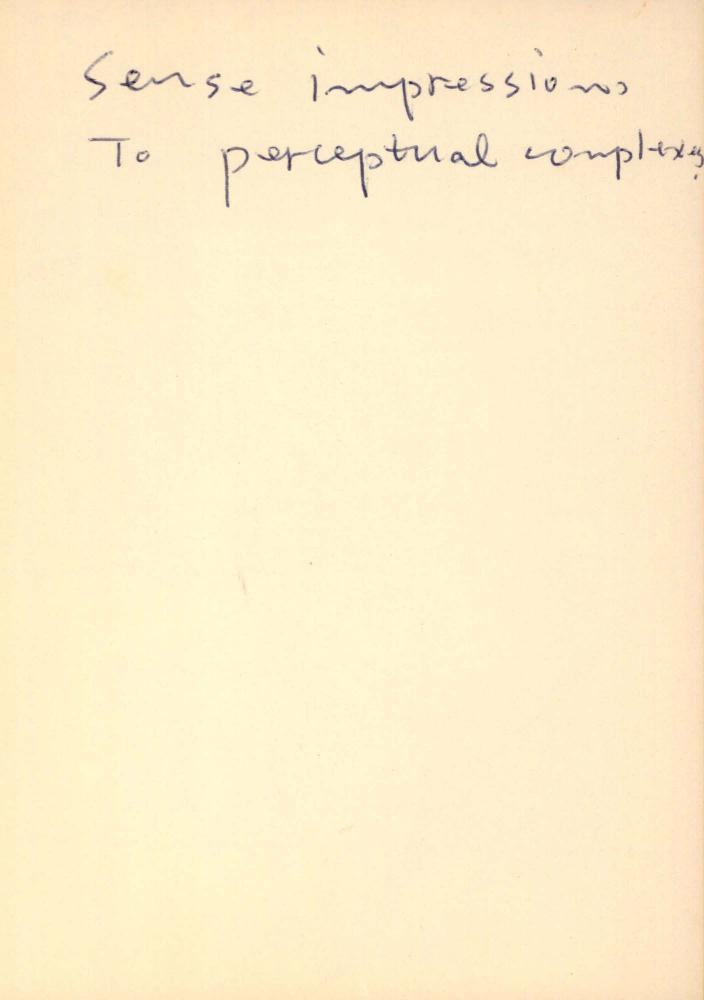 Sense impressions
To perceptual complexes